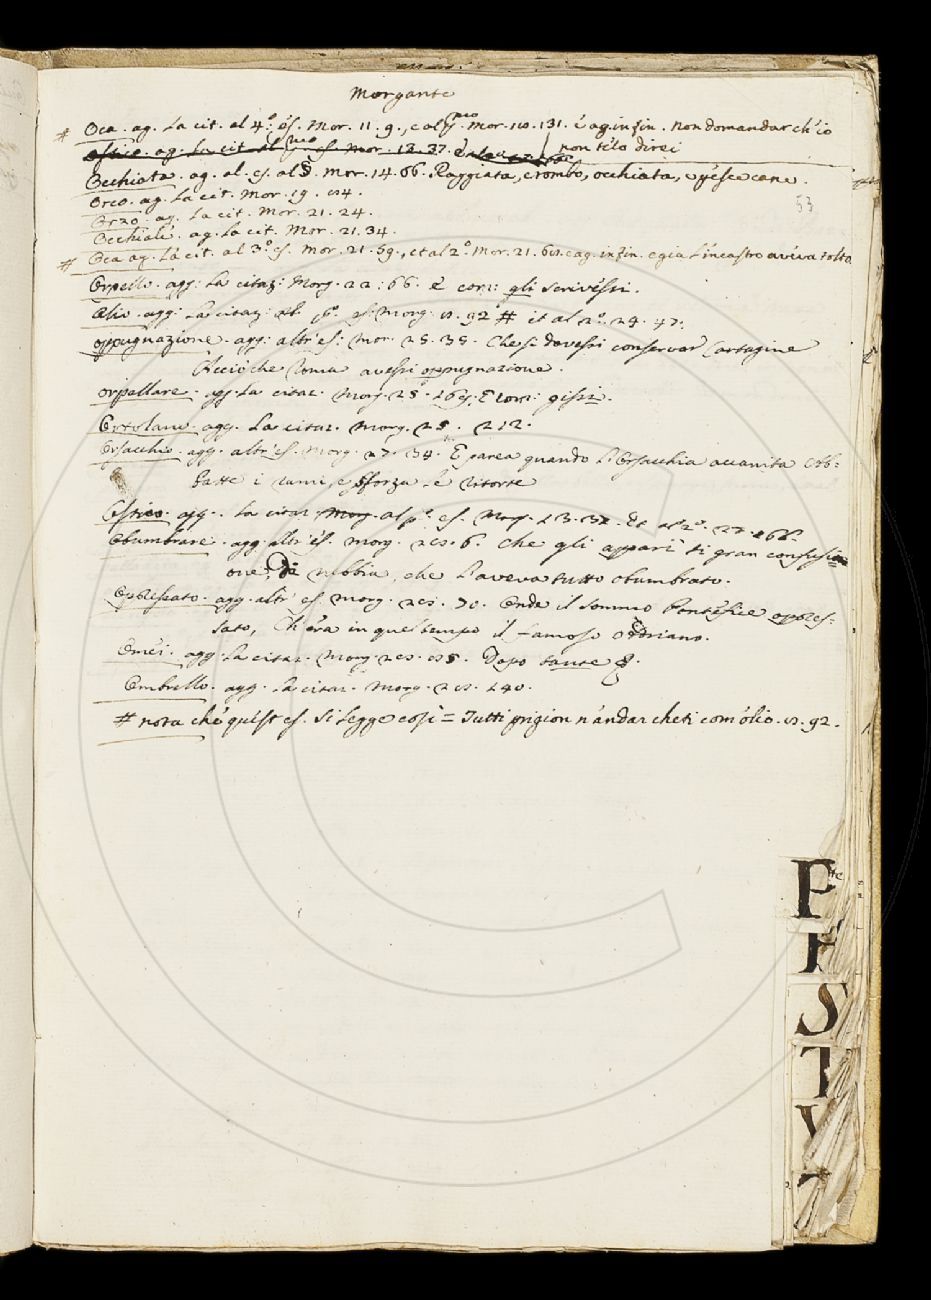 Morgante
# Oca. ag. La cit. al 4.º es. Mor. 11. 9., e al pmo Mor. 10. 131. è ag. in fin. non domandar ch'io
non te lo direi
Ostico. ag. La cit. al pmo es. Mor. 13. 37. è
Occhiata. ag. al. es. al §. Mor. 14. 66. Raggiata, e rombo, occhiata, e pésce cane.
Orco. ag. La cit. Mor. 19.
53
Orzo. ag. La cit. Mor. 21. 24.
Occhiali. ag. La cit. Mor. 21. 34.
# Oca ag. La cit. al 3.º es. Mor. 21. 59., et al 2.º Mor. 21. e ag. in fin. e gia l'incastro aveva tolto
Orpello. agg. La citaz: Morg. 22. 66. è corr: gli scrivéssi.
Olio. agg: La citaz: al pº. es. Morg. 92 # et al 2º. 24. 47.
oppugnazione. agg: altr'es: Mor. 25. 35. Che si dovessi conservar Cartagine
Acciò che Roma avessi oppugnazione.
orpellare. agg. La citaz. Morg. 25. E corr: gissi.
Ortolano. agg. La citaz. Morg. 25. 212.
Orsacchio. agg. altr'es. Morg. 27. 34. E parea quando l'Orsacchia accanita Ab=
batte i rami, e sforza le ritorte
Ostico. agg. La citaz. Morg. al pº. es. Morg. 13. 37. Et al 2º. 27. 266.
Obumbrare. agg. altr'es. Morg. 6. Che gli apparì di gran confusi=
one, Di nebbia, che l'aveva tutto obumbrato.
Oppressato. agg. altr'es. Morg. 70. Onde il sommo Pontéfice oppres=
sato, Ch'éra in quel tempo il famoso Adriano.
Oméi. agg. La citaz. Morg. Dopo tante §.
Ombrello. agg. La citaz. Morg. 140.
# nota che quést'es. si legge così = Tutti prigion n'andar cheti com'ólio. 92.
P
R
S
T
V
Z